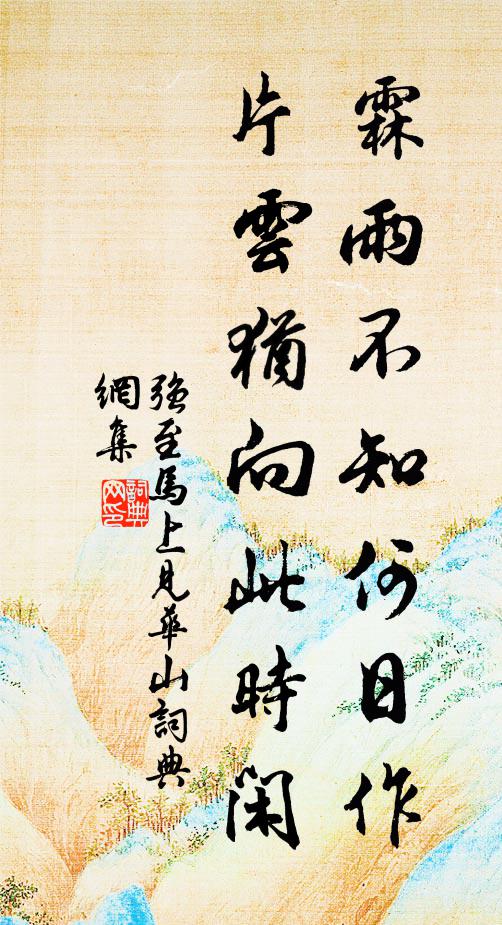 霖雨不知何日作
片雲猶向此時閑
強至馬上見華山詞典
網集
詞典
网印